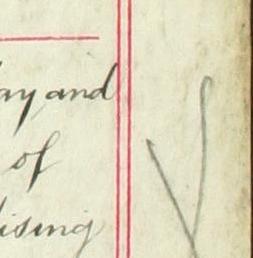 ay and
of
ising